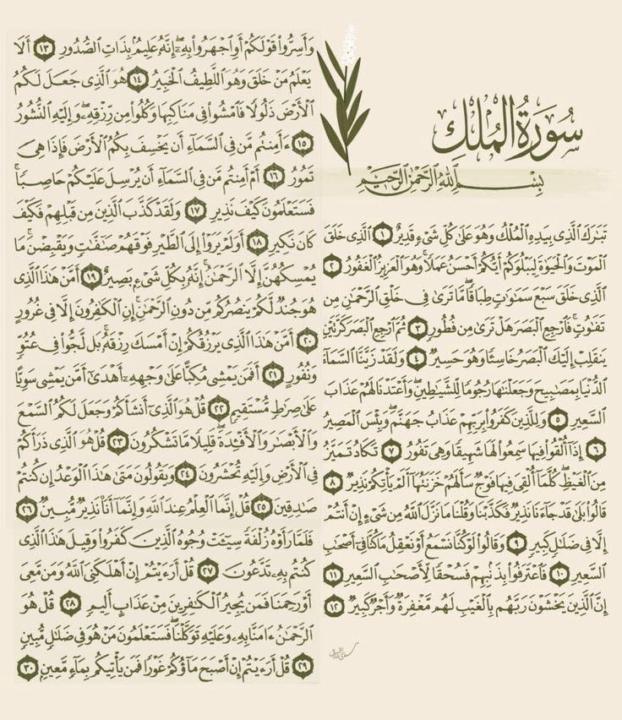 سُورَةُ الْمُلْكِ
بِسْمِ اللَّهِ الرَّحْمَٰنِ الرَّحِيمِ
تَبَٰرَكَ الَّذِى بِيَدِهِ الْمُلْكُ وَهُوَ عَلَىٰ كُلِّ شَىْءٍ قَدِيرٌ ١ الَّذِى خَلَقَ
الْمَوْتَ وَالْحَيَوٰةَ لِيَبْلُوَكُمْ أَيُّكُمْ أَحْسَنُ عَمَلًا ۚ وَهُوَ الْعَزِيزُ الْغَفُورُ ٢
الَّذِى خَلَقَ سَبْعَ سَمَٰوَٰتٍ طِبَاقًا ۖ مَّا تَرَىٰ فِى خَلْقِ الرَّحْمَٰنِ مِن
تَفَٰوُتٍ ۖ فَارْجِعِ الْبَصَرَ هَلْ تَرَىٰ مِن فُطُورٍ ٣ ثُمَّ ارْجِعِ الْبَصَرَ كَرَّتَيْنِ
يَنقَلِبْ إِلَيْكَ الْبَصَرُ خَاسِئًا وَهُوَ حَسِيرٌ ٤ وَلَقَدْ زَيَّنَّا السَّمَاءَ
الدُّنْيَا بِمَصَٰبِيحَ وَجَعَلْنَٰهَا رُجُومًا لِّلشَّيَٰطِينِ ۖ وَأَعْتَدْنَا لَهُمْ عَذَابَ
السَّعِيرِ ٥ وَلِلَّذِينَ كَفَرُوا بِرَبِّهِمْ عَذَابُ جَهَنَّمَ ۖ وَبِئْسَ الْمَصِيرُ
٦ إِذَا أُلْقُوا فِيهَا سَمِعُوا لَهَا شَهِيقًا وَهِىَ تَفُورُ ٧ تَكَادُ تَمَيَّزُ
مِنَ الْغَيْظِ ۖ كُلَّمَا أُلْقِىَ فِيهَا فَوْجٌ سَأَلَهُمْ خَزَنَتُهَا أَلَمْ يَأْتِكُمْ نَذِيرٌ ٨
قَالُوا بَلَىٰ قَدْ جَاءَنَا نَذِيرٌ فَكَذَّبْنَا وَقُلْنَا مَا نَزَّلَ اللَّهُ مِن شَىْءٍ إِنْ أَنتُمْ
إِلَّا فِى ضَلَٰلٍ كَبِيرٍ ٩ وَقَالُوا لَوْ كُنَّا نَسْمَعُ أَوْ نَعْقِلُ مَا كُنَّا فِى أَصْحَٰبِ
السَّعِيرِ ١٠ فَاعْتَرَفُوا بِذَنبِهِمْ فَسُحْقًا لِّأَصْحَٰبِ السَّعِيرِ ١١
إِنَّ الَّذِينَ يَخْشَوْنَ رَبَّهُم بِالْغَيْبِ لَهُم مَّغْفِرَةٌ وَأَجْرٌ كَبِيرٌ ١٢
وَأَسِرُّوا قَوْلَكُمْ أَوِ اجْهَرُوا بِهِ ۖ إِنَّهُ عَلِيمٌ بِذَاتِ الصُّدُورِ ١٣ أَلَا
يَعْلَمُ مَنْ خَلَقَ وَهُوَ اللَّطِيفُ الْخَبِيرُ ١٤ هُوَ الَّذِى جَعَلَ لَكُمُ
الْأَرْضَ ذَلُولًا فَامْشُوا فِى مَنَاكِبِهَا وَكُلُوا مِن رِّزْقِهِ ۖ وَإِلَيْهِ النُّشُورُ
١٥ ءَأَمِنتُم مَّن فِى السَّمَاءِ أَن يَخْسِفَ بِكُمُ الْأَرْضَ فَإِذَا هِىَ
تَمُورُ ١٦ أَمْ أَمِنتُم مَّن فِى السَّمَاءِ أَن يُرْسِلَ عَلَيْكُمْ حَاصِبًا ۖ
فَسَتَعْلَمُونَ كَيْفَ نَذِيرِ ١٧ وَلَقَدْ كَذَّبَ الَّذِينَ مِن قَبْلِهِمْ فَكَيْفَ
كَانَ نَكِيرِ ١٨ أَوَلَمْ يَرَوْا إِلَى الطَّيْرِ فَوْقَهُمْ صَٰفَّٰتٍ وَيَقْبِضْنَ ۚ مَا
يُمْسِكُهُنَّ إِلَّا الرَّحْمَٰنُ ۚ إِنَّهُ بِكُلِّ شَىْءٍ بَصِيرٌ ١٩ أَمَّنْ هَٰذَا الَّذِى
هُوَ جُندٌ لَّكُمْ يَنصُرُكُم مِّن دُونِ الرَّحْمَٰنِ ۚ إِنِ الْكَٰفِرُونَ إِلَّا فِى غُرُورٍ
٢٠ أَمَّنْ هَٰذَا الَّذِى يَرْزُقُكُمْ إِنْ أَمْسَكَ رِزْقَهُ ۚ بَل لَّجُّوا فِى عُتُوٍّ
وَنُفُورٍ ٢١ أَفَمَن يَمْشِى مُكِبًّا عَلَىٰ وَجْهِهِ أَهْدَىٰ أَمَّن يَمْشِى سَوِيًّا
عَلَىٰ صِرَٰطٍ مُّسْتَقِيمٍ ٢٢ قُلْ هُوَ الَّذِى أَنشَأَكُمْ وَجَعَلَ لَكُمُ السَّمْعَ
وَالْأَبْصَٰرَ وَالْأَفْـِٔدَةَ ۖ قَلِيلًا مَّا تَشْكُرُونَ ٢٣ قُلْ هُوَ الَّذِى ذَرَأَكُمْ
فِى الْأَرْضِ وَإِلَيْهِ تُحْشَرُونَ ٢٤ وَيَقُولُونَ مَتَىٰ هَٰذَا الْوَعْدُ إِن كُنتُمْ
صَٰدِقِينَ ٢٥ قُلْ إِنَّمَا الْعِلْمُ عِندَ اللَّهِ وَإِنَّمَا أَنَا نَذِيرٌ مُّبِينٌ ٢٦
فَلَمَّا رَأَوْهُ زُلْفَةً سِيـَٔتْ وُجُوهُ الَّذِينَ كَفَرُوا وَقِيلَ هَٰذَا الَّذِى
كُنتُم بِهِ تَدَّعُونَ ٢٧ قُلْ أَرَءَيْتُمْ إِنْ أَهْلَكَنِىَ اللَّهُ وَمَن مَّعِىَ
أَوْ رَحِمَنَا فَمَن يُجِيرُ الْكَٰفِرِينَ مِنْ عَذَابٍ أَلِيمٍ ٢٨ قُلْ هُوَ
الرَّحْمَٰنُ ءَامَنَّا بِهِ وَعَلَيْهِ تَوَكَّلْنَا ۖ فَسَتَعْلَمُونَ مَنْ هُوَ فِى ضَلَٰلٍ مُّبِينٍ
٢٩ قُلْ أَرَءَيْتُمْ إِنْ أَصْبَحَ مَاؤُكُمْ غَوْرًا فَمَن يَأْتِيكُم بِمَاءٍ مَّعِينٍ ٣٠